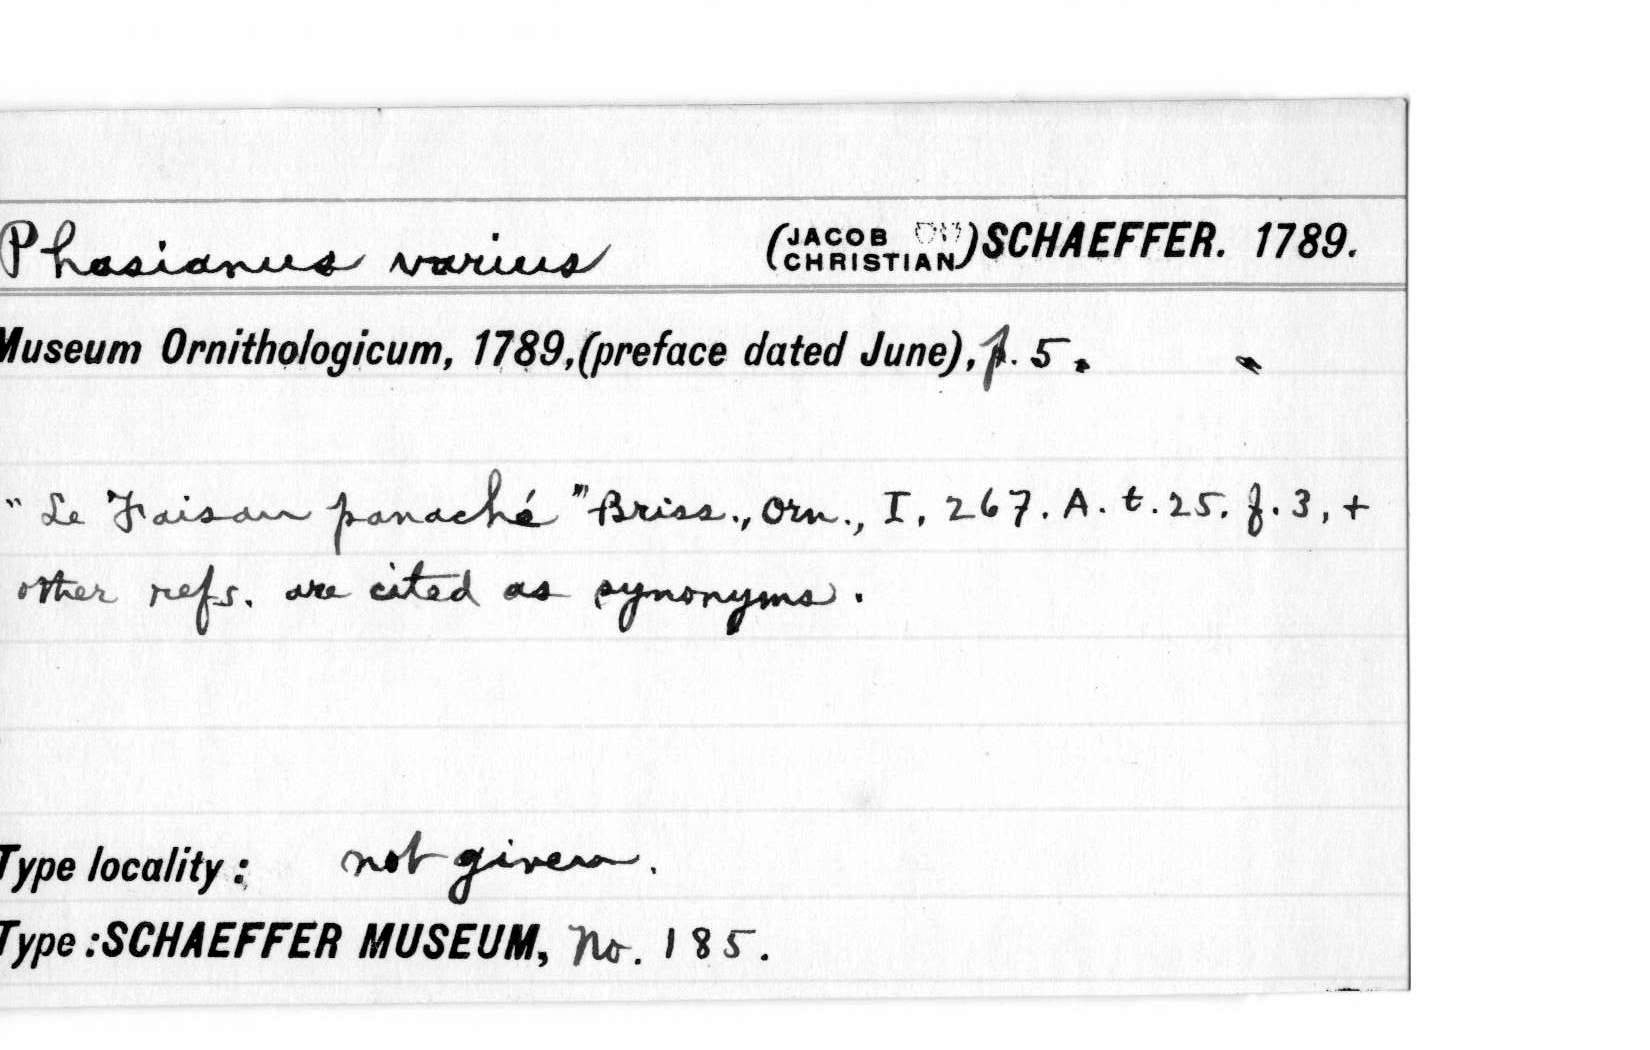 Phasianus varius (JACOB CHRISTIAN) SCHAEFFER. 1789.
Museum Ornithologicum, 1789,(preface dated June), p. 5.
"Le Faisan panaché" Briss., Orn., I, 267. A. t. 25. f. 3, +
other refs. are cited as synonyms.
Type locality: not given.
Type: SCHAEFFER MUSEUM, No. 185.